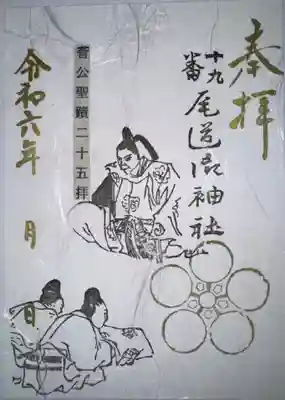 奉拝
十九番
尾道御袖社
菅公聖蹟二十五拝
令和六年　月　日